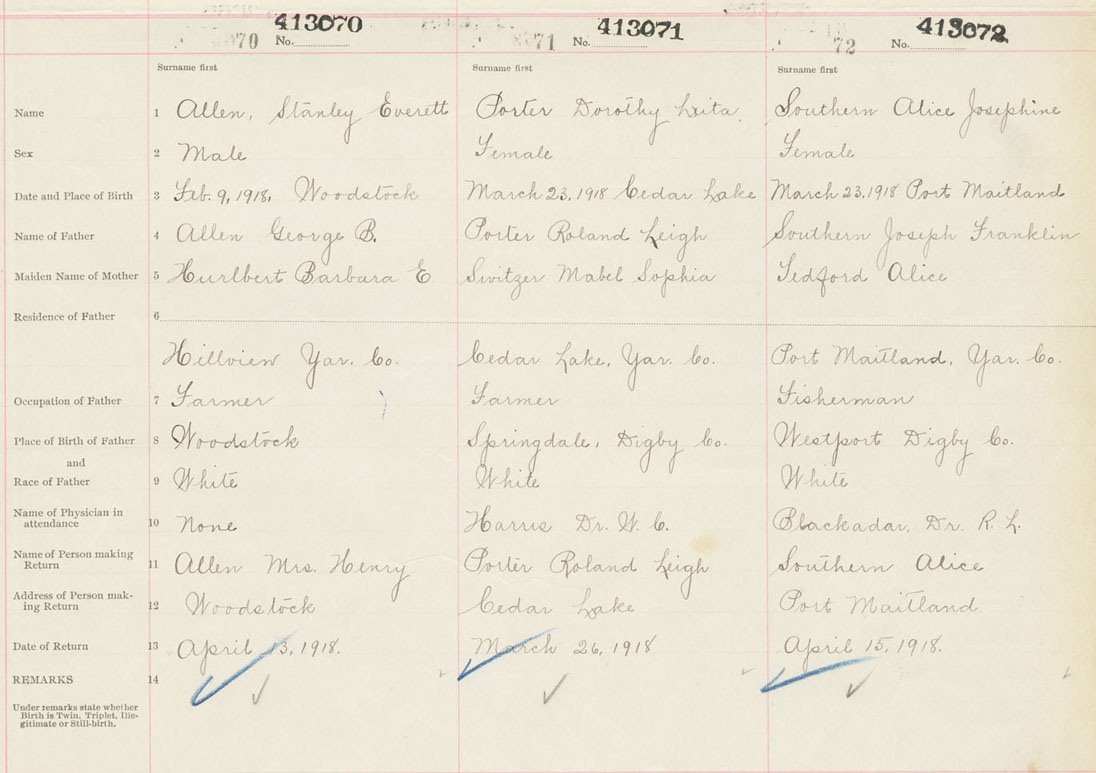 413070 413071 413072
70 No. 71 No. 72 No.
Surname first Surname first Surname first
Name 1 Allen, Stanley Everett Porter Dorothy Leita Southern Alice Josephine
Sex 2 Male Female Female
Date and Place of Birth 3 Feb. 9, 1918, Woodstock March 23, 1918 Cedar Lake March 23, 1918 Port Maitland
Name of Father 4 Allen George B. Porter Roland Leigh Southern Joseph Franklin
Maiden Name of Mother 5 Hurlbert Barbara E Switzer Mabel Sophia Tedford Alice
Residence of Father 6
Hillview Yar. Co. Cedar Lake, Yar. Co. Port Maitland, Yar. Co.
Occupation of Father 7 Farmer Farmer Fisherman
Place of Birth of Father 8 Woodstock Springdale, Digby Co. Westport Digby Co.
and
Race of Father 9 White White White
Name of Physician in
attendance 10 None Harris Dr. W. C. Blackadar, Dr. R. L.
Name of Person making
Return 11 Allen Mrs. Henry Porter Roland Leigh Southern Alice
Address of Person mak-
ing Return 12 Woodstock Cedar Lake Port Maitland
Date of Return 13 April 13, 1918. March 26, 1918 April 15, 1918.
REMARKS 14
Under remarks state whether
Birth is Twin, Triplet, Ille-
gitimate or Still-birth.